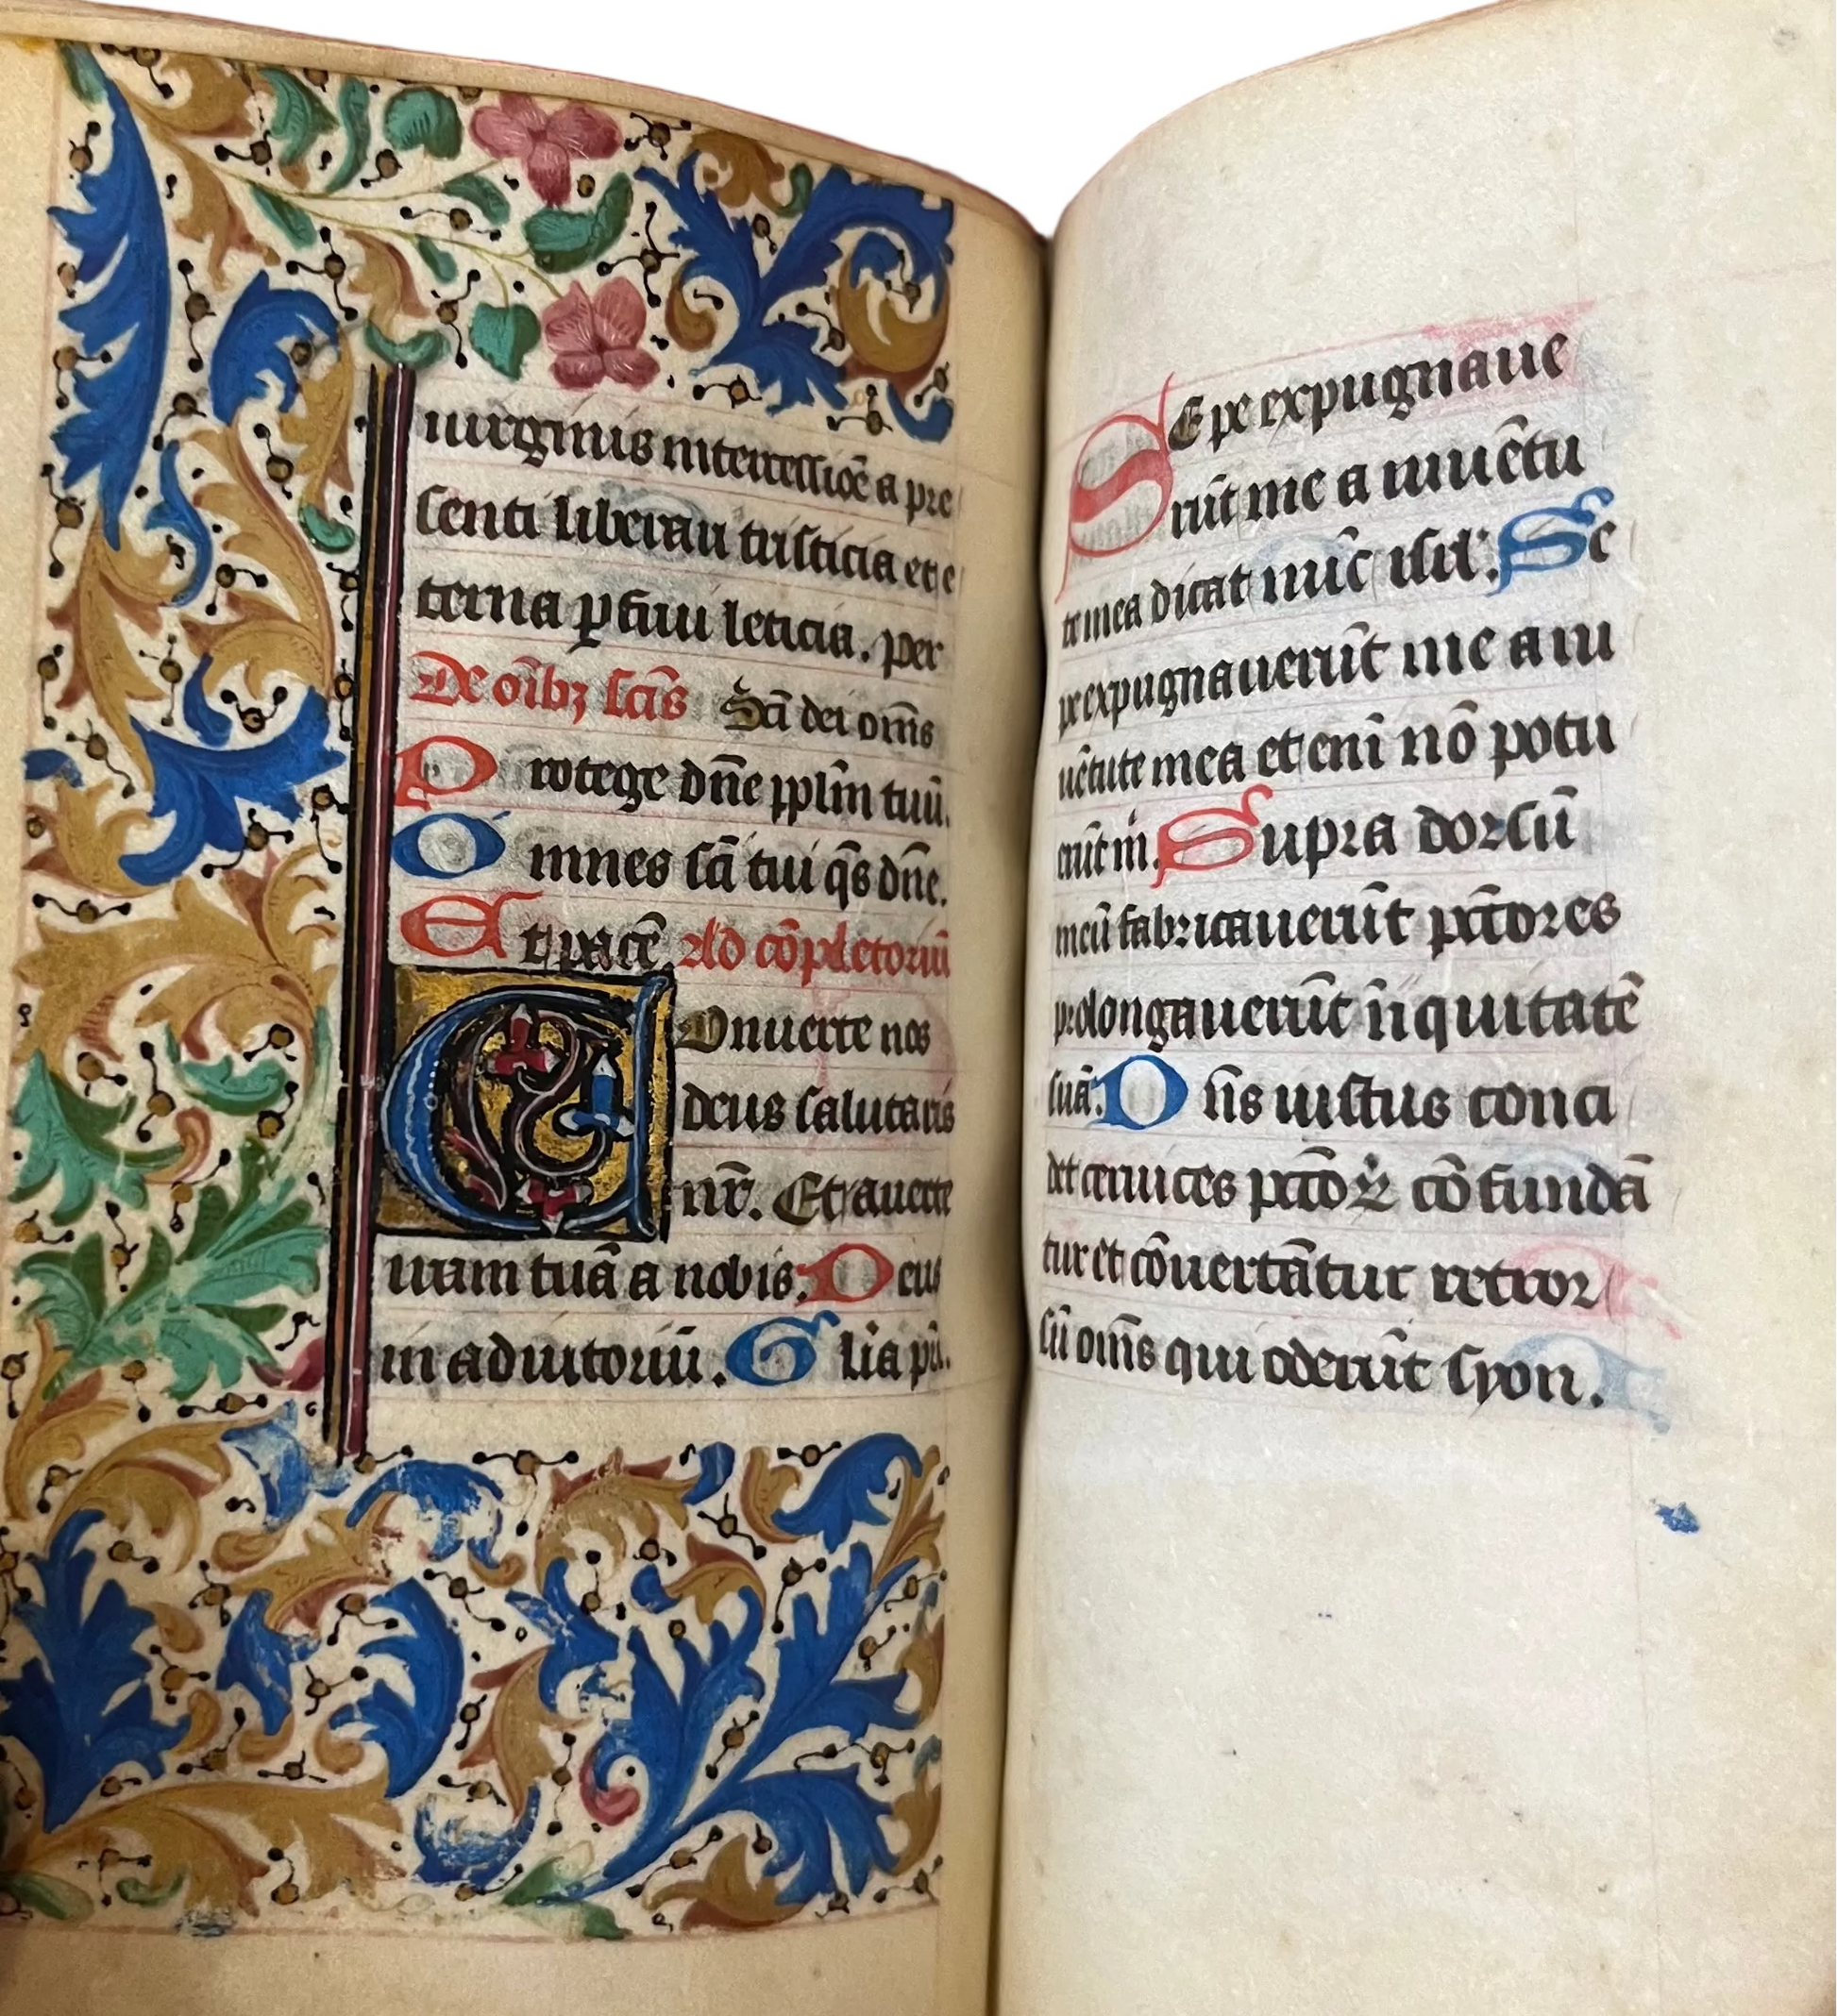 uirginis intercessiōe a pre
senti liberari tristicia et e
terna ꝑfrui leticia. per
De oīb⁊ scīs Scī dei oīns
Protege dn̄e pplm̄ tuū.
Omnes scī tui q̄s dn̄e.
Et pacē Ad cōpletoriū
Conuerte nos
deus salutaris
nr̄. Et auerte
iram tuā a nobis. Deus
in adiutoriū. Glīa pri.
SEpe expugnaue
rūt me a iuuētu
te mea dicat nūc isrl'. Se
pe expugnauerūt me a iu
uētute mea et enī nō potu
erūt m̄. Supra dorsū
meū fabricauerūt pctōres
prolongauerūt īiquitatē
suā. Dn̄s iustus conci
det ceruices pctōꝝ cōfundā
tur et cōuertātur retror
sū om̄s qui oderūt syon.